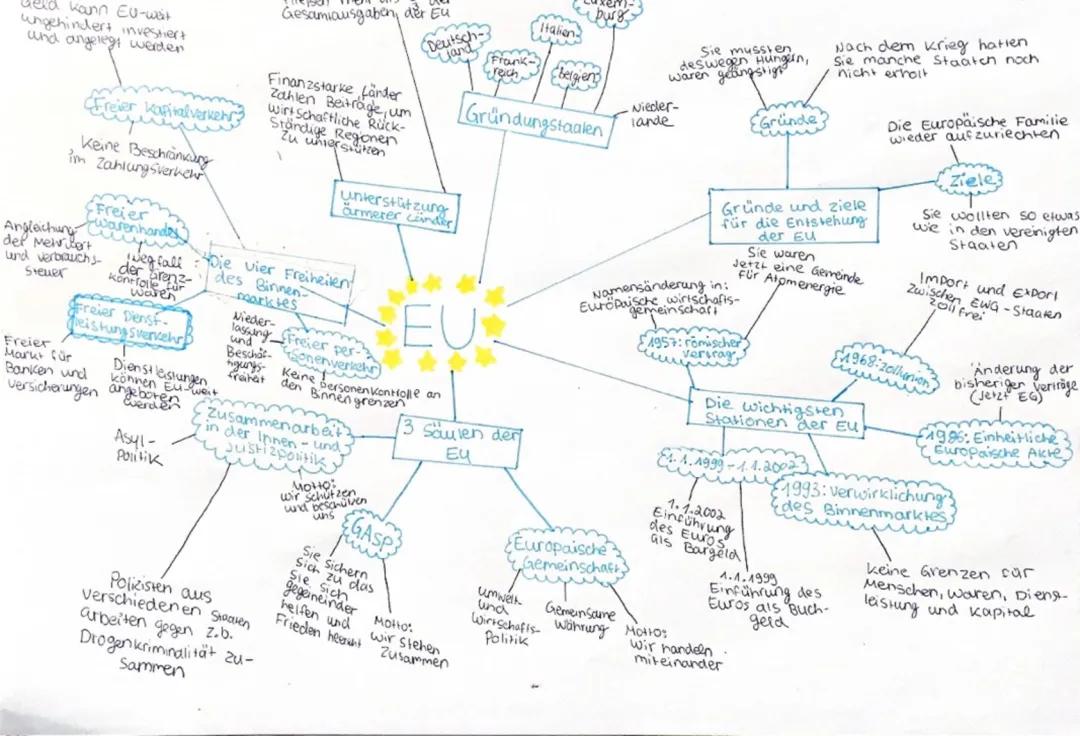 Geld kann EU-weit
ungehindert investiert
und angelegt werden
Freier Kapitalverkehr
Keine Beschränkung
im Zahlungsverkehr
Gesamtausgaben der EU
Finanzstarke Länder
zahlen Beiträge, um
wirtschaftliche Rück-
ständige Regionen
zu unterstützen
Unterstützung
ärmerer Länder
Deutsch-
land
Frank-
reich
Italien
Belgien
Luxem-
burg
Nieder-
lande
Gründungstaaten
Sie mussten
deswegen Hungern,
waren geängstigt
Nach dem Krieg hatten
Sie manche Staaten noch
nicht erholt
Gründe
Die Europäische Familie
wieder aufzurichten
Ziele
Sie wollten so etwas
wie in den vereinigten
Staaten
Gründe und Ziele
für die Entstehung
der EU
Freier
Warenhandel
Angleichung
der Mehrwert
und verbrauchs-
steuer
Wegfall
der Grenz-
kontrolle für
Waren
Die vier Freiheiten
des Binnen-
marktes
Freier Dienst-
leistungsverkehr
Freier
Markt für
Banken und
Versicherungen
Dienstleistungen
können EU-weit
angeboten
werden
Nieder-
lassung
und
Beschäf-
tigungs-
freiheit
Freier per-
sonenverkehr
Keine personenkontrolle an
den Binnengrenzen
EU
Sie waren
Jetzt eine Gemeinde
für Atomenergie
Namensänderung in:
Europäische wirtschafts-
gemeinschaft
1957: römischer
vertrag
Import und Export
zwischen EWG-Staaten
zoll frei
1968: zollunion
Änderung der
bisherigen verträge
(Jetzt EG)
1986: Einheitliche
Europäische Akte
Die wichtigsten
Stationen der EU
1.1.1999-1.1.2002
1.1.2002
Einführung
des Euros
als Bargeld
1.1.1999
Einführung des
Euros als Buch-
geld
1993: verwirklichung
des Binnenmarktes
Keine Grenzen für
Menschen, Waren, Dienst-
leistung und Kapital
3 Säulen der
EU
Zusammenarbeit
in der Innen- und
Justizpolitik
Asyl-
Politik
Motto:
wir schützen
und beschützen
uns
Polizisten aus
verschiedenen Staaten
arbeiten gegen z.b.
Drogenkriminalität zu-
sammen
GASP
Sie sichern
sich zu das
Sie sich
gegeneinder
helfen und
Frieden herscht
Motto:
wir stehen
zusammen
Europäische
Gemeinschaft
Umwelt
und
Wirtschafts-
Politik
Gemeinsame
Währung
Motto:
Wir handeln
miteinander